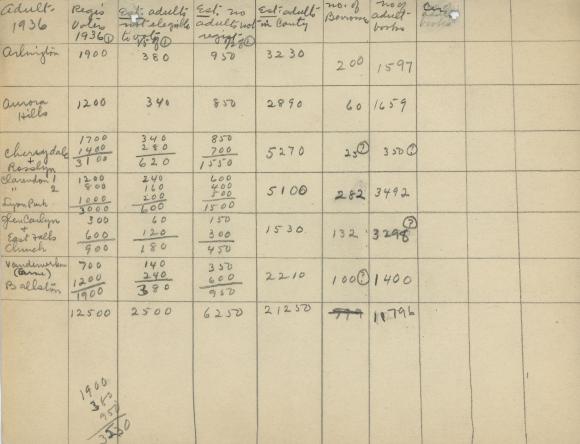 Adult- Regis Est. adults Est. no Est. adults no. of no of
1936 Voters not eligible adults not in County Borrowers adult
1936 ① to vote ① regist books
Arlington 1900 380 950 3230 200 1597
Aurora Hills 1200 340 850 2890 60 1659
1700 340 850
Cherrydale 1400 280 700 5270 25 ? 350 ?
+ Rosslyn 3100 620 1550
Clarendon 1 1200 240 600
" 2 800 160 400 5100 282 3492
Lyon Park 1000 200 500
3000 600 1500
Glen Carlyn 300 60 150
+ East Falls 600 120 300 1530 132 3298 ?
Church 900 180 450
Vanderwerken 700 140 350
1200 240 600 2210 100 ? 1400
Ballston 1900 380 950
12500 2500 6250 21250 11796
1900
380
950
3230